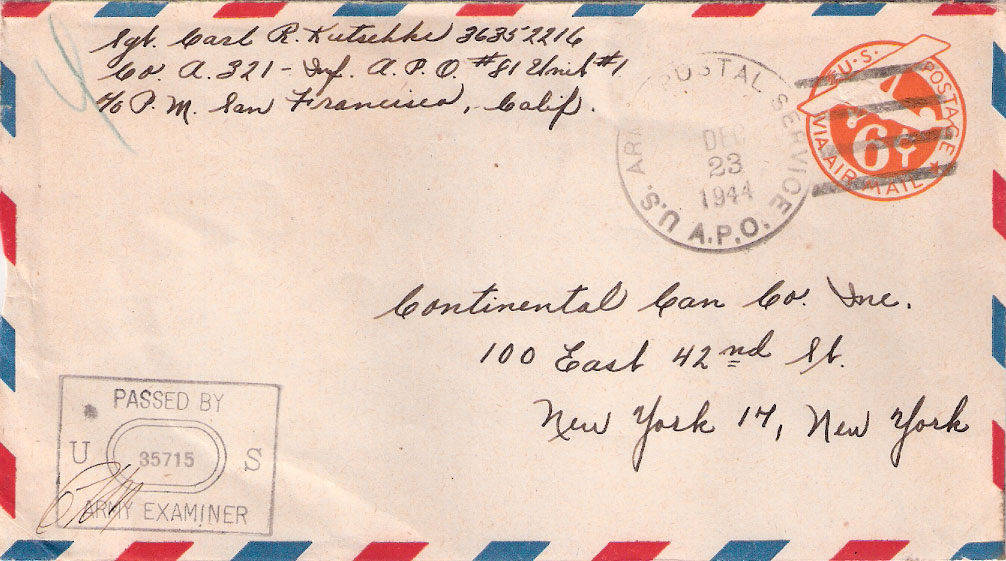 Sgt. Carl R. Kutschke 36352216
Co. A. 321 - Inf. A.P.O. #81 Unit #1
c/o P.M. San Francisco, Calif.
U.S. ARMY POSTAL SERVICE
DEC
23
1944
A.P.O.
U.S. POSTAGE
6¢
VIA AIR MAIL
Continental Can Co. Inc.
100 East 42nd St.
New York 17, New York
PASSED BY
U 35715 S
ARMY EXAMINER